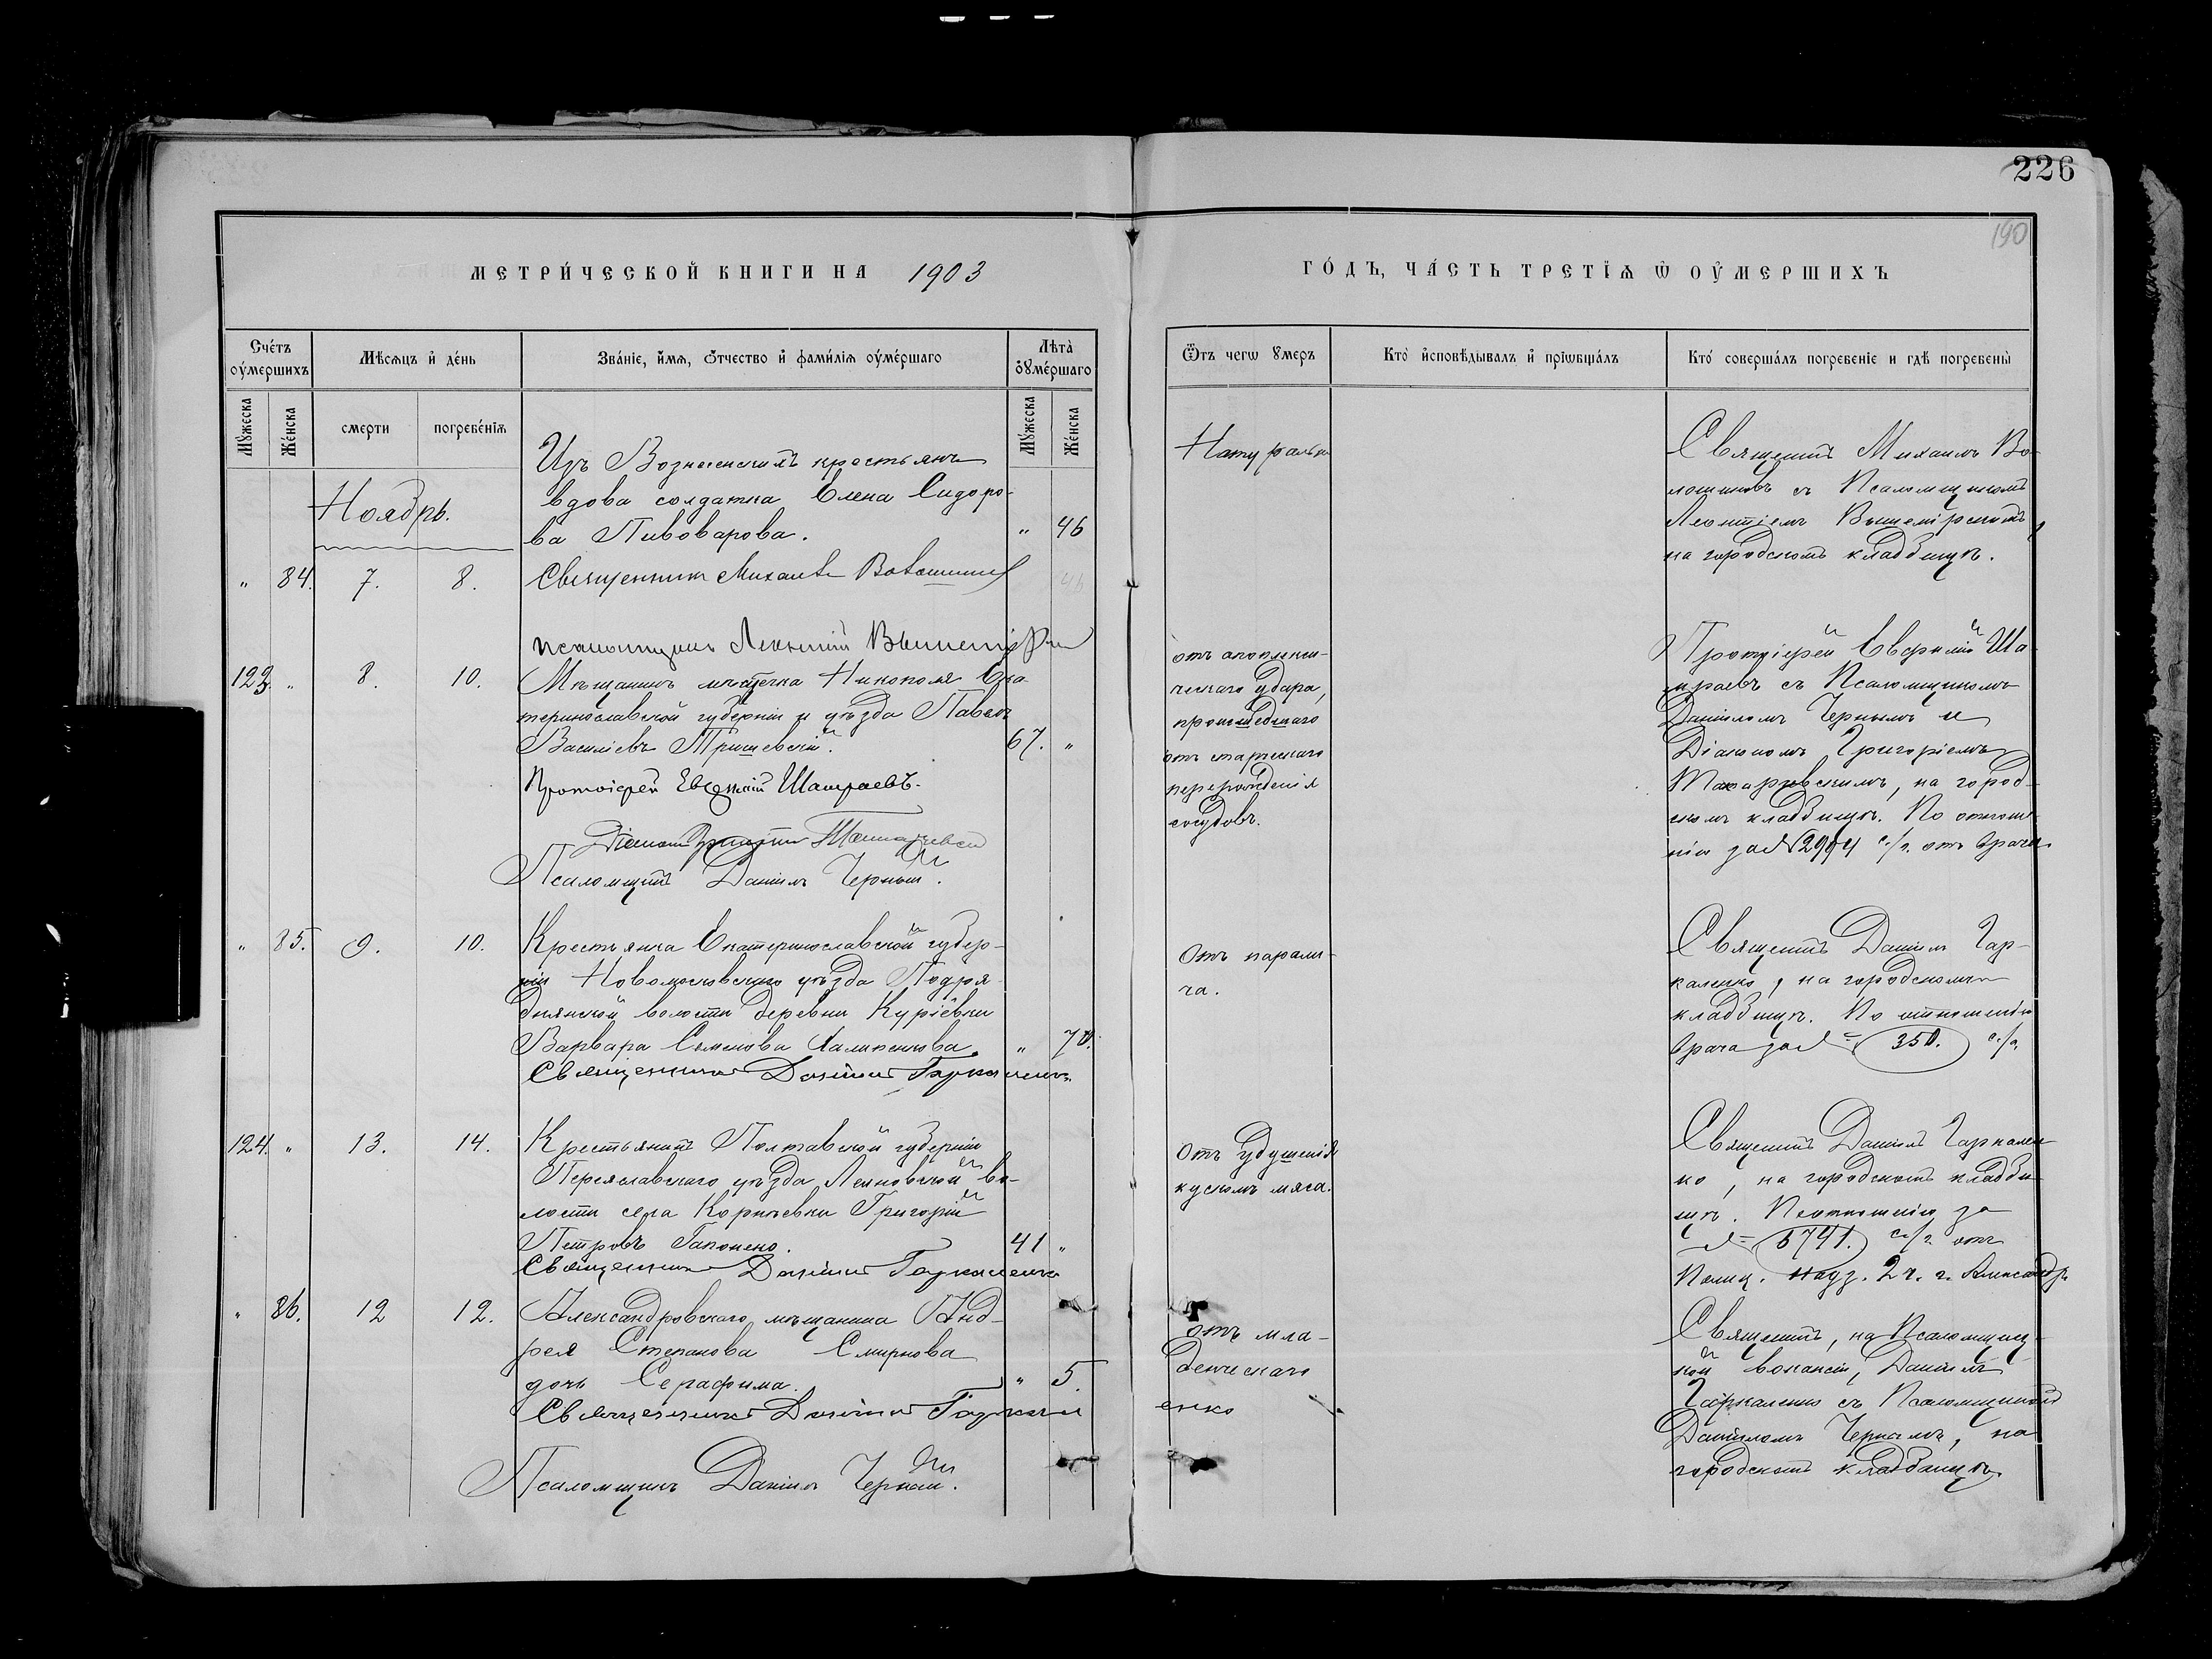 226
190
МЕТРИ́ЧЕСКОЙ КНИГИ НА 1903
ГО́ДЪ, ЧА́СТЬ ТРЕТІѦ Ѡ ОУ҆МЕРШИХЪ
Сче́тъ оу҆ме́ршихъ
Мѣ́сѧцъ и҆ де́нь
Зва́ніе, и҆́мѧ, ѻ҆́тчество и҆ фами́лїѧ оу҆ме́ршаго
Лѣта̀ оу҆ме́ршаго
Ѿтъ чегѡ ꙋмеръ
Кто̀ и҆сповѣ́дывалъ и҆ прїѡбща́лъ
Кто́ соверша́лъ погребе́ніе и гдѣ̀ погребены̀
Мꙋ́жеска
Же́нска
смерти
погребе́нїѧ
Мꙋ́жеска
Же́нска
Ноябрь.
Изъ Вознесенскихъ крестьянъ
вдова солдатка Елена Сидоро-
ва Пивоварова.
" 46
" 84. 7. 8.
Священникъ Михаилъ Волошиновъ
псаломщикъ Леонтій Вышемірскій
Натурально
Священникъ Михаилъ Во-
лошиновъ съ Псаломщикомъ
Леонтіемъ Вышемірскимъ,
на городскомъ кладбищѣ.
123. " 8. 10.
Мѣщанинъ мѣстечка Никополя Ека-
теринославской губерніи и уѣзда Павелъ
Василіевъ Тришевскій.
67. "
Протоіерей Евгеній Шатраевъ.
Діаконъ Григорій
Псаломщикъ Даніилъ Черный.
отъ апоплекси-
ческаго удара,
происшедшаго
отъ старческаго
перерожденія
сосудовъ.
Протоіерей Евгеній Ша-
траевъ съ Псаломщикомъ
Даніиломъ Чернымъ и
Діакономъ Григоріемъ
на город-
скомъ кладбищѣ. По отноше-
нію за № 2994 с/г. отъ врача
" 85. 9. 10.
Крестьянка Екатеринославской губер-
ніи Новомосковскаго уѣзда Подря-
днянской волости деревни Куріевки
Варвара Семенова Халипенкова.
" 70.
Священникъ Даніилъ Гаркаленко
Отъ парали-
ча.
Священникъ Даніилъ Гар-
каленко, на городскомъ
кладбищѣ. По отношенію
врача за № 350. с/г.
124. " 13. 14.
Крестьянинъ Полтавской губерніи
Переяславскаго уѣзда во-
лости села Корнѣевки Григорій
Петровъ Гапоненко.
41 "
Священникъ Даніилъ Гаркаленко
Отъ удушенія
кускомъ мяса.
Священникъ Даніилъ Гаркален-
ко, на городскомъ кладби-
щѣ. По отношенію за
№ 6741. с/г. отъ
Полиц. надз. 2 ч. г. Александр.
" 86. 12 12.
Александровскаго мѣщанина Анд-
рея Степанова Смирнова
дочь Серафима.
" 5.
Священникъ Даніилъ Гаркал
енко
Псаломщикъ Даніилъ Черный.
отъ мла-
денческаго
Священникъ, на Псаломщиц-
кой вакансіи, Даніилъ
Гаркаленко съ Псаломщикомъ
Даніиломъ Чернымъ, на
городскомъ кладбищѣ.